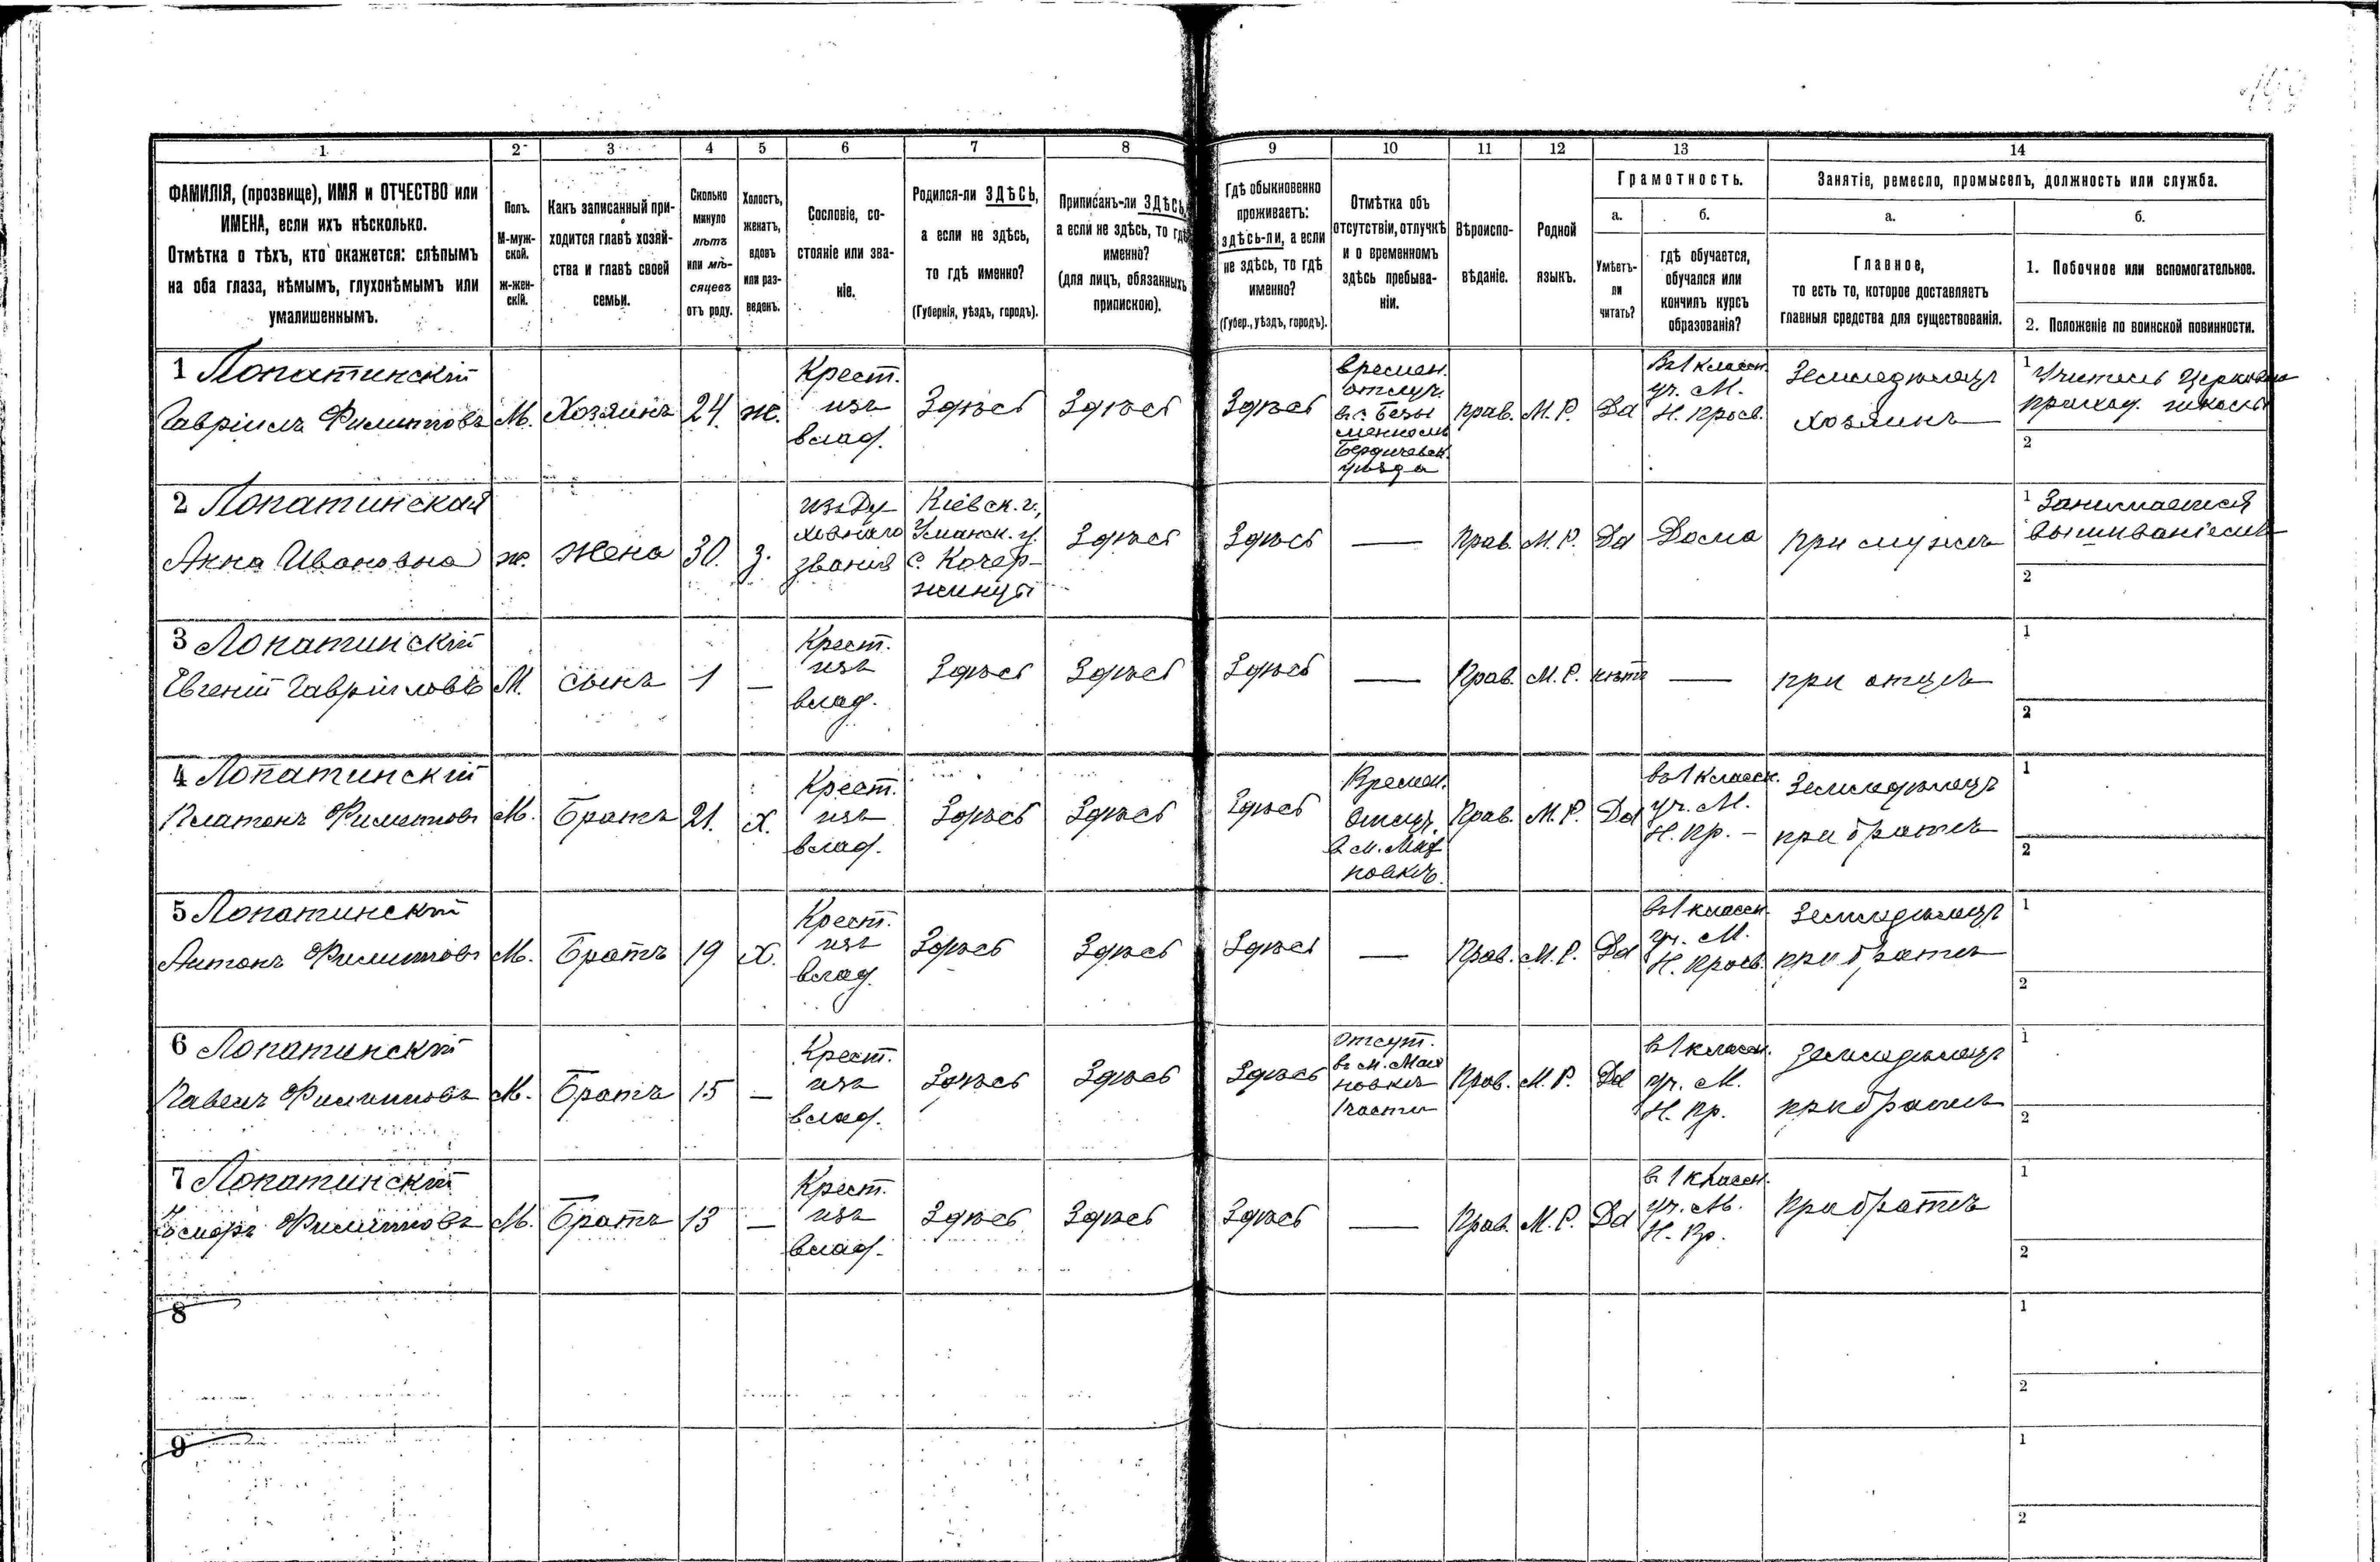 1 2 3 4 5 6 7 8 9 10 11 12 13 14
ФАМИЛІЯ, (прозвище), ИМЯ и ОТЧЕСТВО или
ИМЕНА, если ихъ нѣсколько.
Отмѣтка о тѣхъ, кто окажется: слѣпымъ
на оба глаза, нѣмымъ, глухонѣмымъ или
умалишеннымъ.
Полъ.
М-муж-
ской.
ж-жен-
скій.
Какъ записанный при-
ходится главѣ хозяй-
ства и главѣ своей
семьи.
Сколько
минуло
лѣтъ
или мѣ-
сяцевъ
отъ роду.
Холостъ,
женатъ,
вдовъ
или раз-
веденъ.
Сословіе, со-
стояніе или зва-
ніе.
Родился-ли ЗДѢСЬ,
а если не здѣсь,
то гдѣ именно?
(Губернія, уѣздъ, городъ).
Приписанъ-ли ЗДѢСЬ,
а если не здѣсь, то гдѣ
именно?
(для лицъ, обязанныхъ
припискою).
Гдѣ обыкновенно
проживаетъ:
здѣсь-ли, а если
не здѣсь, то гдѣ
именно?
(Губер., уѣздъ, городъ).
Отмѣтка объ
отсутствіи, отлучкѣ
и о временномъ
здѣсь пребыва-
ніи.
Вѣроиспо-
вѣданіе.
Родной
языкъ.
Грамотность.
а.
Умѣетъ-
ли
читать?
б.
гдѣ обучается,
обучался или
кончилъ курсъ
образованія?
Занятіе, ремесло, промыселъ, должность или служба.
а.
Главное,
то есть то, которое доставляетъ
главныя средства для существованія.
б.
1. Побочное или вспомогательное.
2. Положеніе по воинской повинности.
1 Лопатинскій
Гавріилъ Филиповъ
М.
Хозяинъ
24.
ж.
Крест.
изъ
влад.
Здѣсь
Здѣсь
Здѣсь
времен.
отлуч.
Бердичевск.
уѣзда
прав.
М. Р.
Да
Въ 1 классн.
уч. М.
Н. Просв.
Земледѣлецъ
хозяинъ
1 Учитель Церковно
приход. школы
2
2 Лопатинская
Анна Ивановна
ж.
Жена
30.
з.
изъ Ду
ховнаго
званія
Кіевск. г.,
Уманск. у.
с. Кочер-
жинцы
Здѣсь
Здѣсь
—
Прав.
М. Р.
Да
Дома
при мужѣ
1 Занимается
вышиваніемъ
2
3 Лопатинскій
Евгеній Гавріиловъ
М.
сынъ
1
—
Крест.
изъ
влад.
Здѣсь
Здѣсь
Здѣсь
—
Прав.
М. Р.
нѣтъ
—
при отцѣ
1
2
4 Лопатинскій
Платонъ Филиповъ
М.
Братъ
21.
х.
Крест.
изъ
влад.
Здѣсь
Здѣсь
Здѣсь
Времен.
Отлуч.
Прав.
М. Р.
Да
въ 1 классн.
уч. М.
Н. Пр. —
Земледѣлецъ
при братѣ
1
2
5 Лопатинскій
Антонъ Филиповъ
М.
Братъ
19
х.
Крест.
изъ
влад.
Здѣсь
Здѣсь
Здѣсь
—
Прав.
М. Р.
Да
въ 1 классн.
уч. М.
Н. Просв.
Земледѣлецъ
при братѣ
1
2
6 Лопатинскій
Павелъ Филиповъ
М.
Братъ
15
—
Крест.
изъ
влад.
Здѣсь
Здѣсь
Здѣсь
Отсут.
въ м. Мань
новкѣ
1 части
Прав.
М. Р.
Да
въ 1 классн.
уч. М.
Н. Пр.
Земледѣлецъ
при братѣ
1
2
7 Лопатинскій
Филиповъ
М.
Братъ
13
—
Крест.
изъ
влад.
Здѣсь
Здѣсь
Здѣсь
—
Прав.
М. Р.
Да
въ 1 классн.
уч. М.
Н. Пр.
При братѣ
1
2
8
1
2
9
1
2